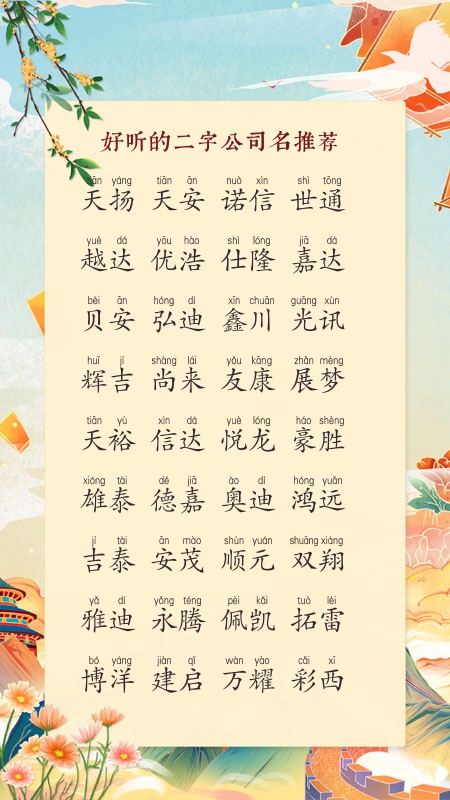 好听的二字公司名推荐
tiān yáng tiān ān nuò xìn shì tōng
天扬 天安 诺信 世通
yuè dá yōu hào shì lóng jiā dá
越达 优浩 仕隆 嘉达
bèi ān hóng dí xīn chuān guāng xùn
贝安 弘迪 鑫川 光讯
huī jí shàng lái yǒu kāng zhǎn mèng
辉吉 尚来 友康 展梦
tiān yù xìn dá yuè lóng háo shèng
天裕 信达 悦龙 豪胜
xióng tài dé jiā ào dí hóng yuǎn
雄泰 德嘉 奥迪 鸿远
jí tài ān mào shùn yuán shuāng xiáng
吉泰 安茂 顺元 双翔
yǎ dí yǒng téng pèi kǎi tuò léi
雅迪 永腾 佩凯 拓雷
bó yáng jiàn qǐ wàn yào cǎi xī
博洋 建启 万耀 彩西